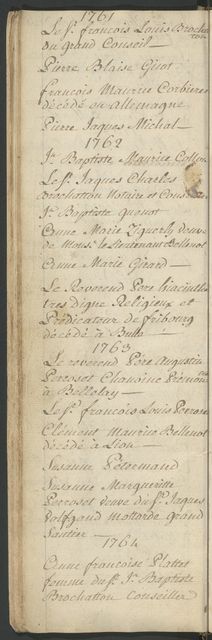 1761
Le Sr. François Louis Brochatton
du grand Conseil
Pierre Blaise Guot
François Maurice Corbiere
décédé en allemagne
Pierre Jaques Michal
1762
Jn. Baptiste Maurice Collon
Le Sr. Jaques Charles
Brochatton Notaire et Conseiller
Jn. Baptiste queuot
Anne Marie veuve
de Mons. le Lieutenant Bellenot
Anne Marie Girard
Le Reverend Pere hiacinthe
tres digne Religieux et
Predicateur de fribourg
décédé à Bulle
1763
Le reverend Père Augustin
Perroset Chanoine
à Bellelay
Le Sr. françois Louis Perroset
Clément Maurice Bellenot
décédé à Lion
Susanne Petermand
Susanne Margueritte
Perroset veuve du Sr. Jaques
Valfgand mottarde grand
Sautier
1764
Anne francoise Plattet
femme du Sr. Jn. Baptiste
Brochatton Conseiller